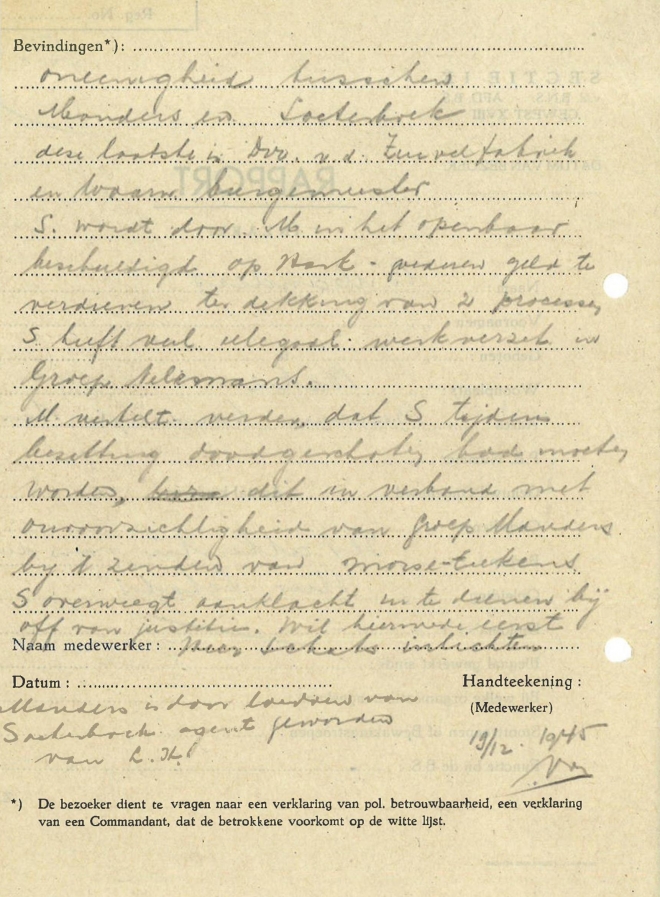 Bevindingen*):
oneenigheid tusschen
Manders en Soeterboek
deze laatste is Dir. v.d. Zuivelfabriek
en waarn burgemeester
S. wordt door M in het openbaar
beschuldigd op goederen geld te
verdienen ter dekking van 2 processen
S heeft veel illegaal werk verzet in
Groep
M vertelt verder, dat S tijdens
bezetting doodgeschoten had moeten
worden, dit in verband met
onvoorzichtigheid van Groep Manders
bij 't zenden van morse-teekens
S overweegt aanklacht in te dienen bij
off van justitie. Wil hiermede eerst
Naam medewerker : inlichten
Datum :
Handteekening :
(Medewerker)
Manders is door toedoen van
Soeterboek agent geworden
van
19/12. 1945
*) De bezoeker dient te vragen naar een verklaring van pol. betrouwbaarheid, een verklaring
van een Commandant, dat de betrokkene voorkomt op de witte lijst.